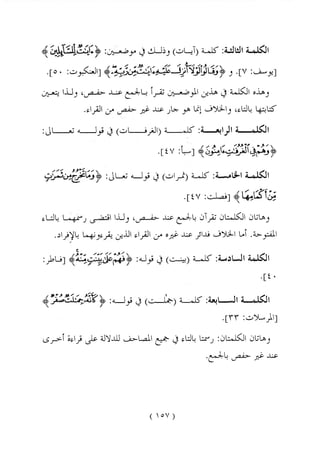 الكلمة الثالثة: كلمة (ءايـت) وذلك في موضعين: ﴿ءايت للسائلين﴾
[يوسف: ٧]. و ﴿وقالوا لولا أنزل عليه ءايت من ربه﴾ [العنكبوت: ٥٠].
وهذه الكلمة في الموضعين تقرأ بالجمع عند حفص، ولذا رسمت
كتابتها بالتاء، والإفراد إنما هو حال عند غير حفص من القراء.
الكلمة الرابعة: كلمة (الغرفـت) في قوله تعالى:
﴿وهم في الغرفت ءامنون﴾ [سبأ: ٤٧].
الكلمة الخامسة: كلمة (ثمرت) في قوله تعالى: ﴿وما تخرج من ثمرت
من أكمامها﴾ [فصلت: ٤٧].
وهاتان الكلمتان تقرآن بالجمع عند حفص، ولذا اقتضى رسمهما بالتاء
المفتوحة. أما الإفراد فثابت عند غيره من القراء الذين يقرءونهما بالإفراد.
الكلمة السادسة: كلمة (بينت) في قوله: ﴿فهم على بينت منه﴾ [فاطر:
٤٠].
الكلمة السابعة: كلمة (جملت) في قوله: ﴿كأنه جملت صفر﴾
[المرسلات: ٣٣].
وهاتان الكلمتان: رسمتا بالتاء في جميع المصاحف للدلالة على قراءة أخرى
عند غير حفص بالجمع.
( ١٥٧ )